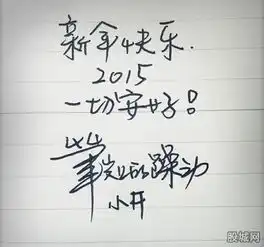 新年快乐.
2015
一切安好!
躁动
小开
股城网